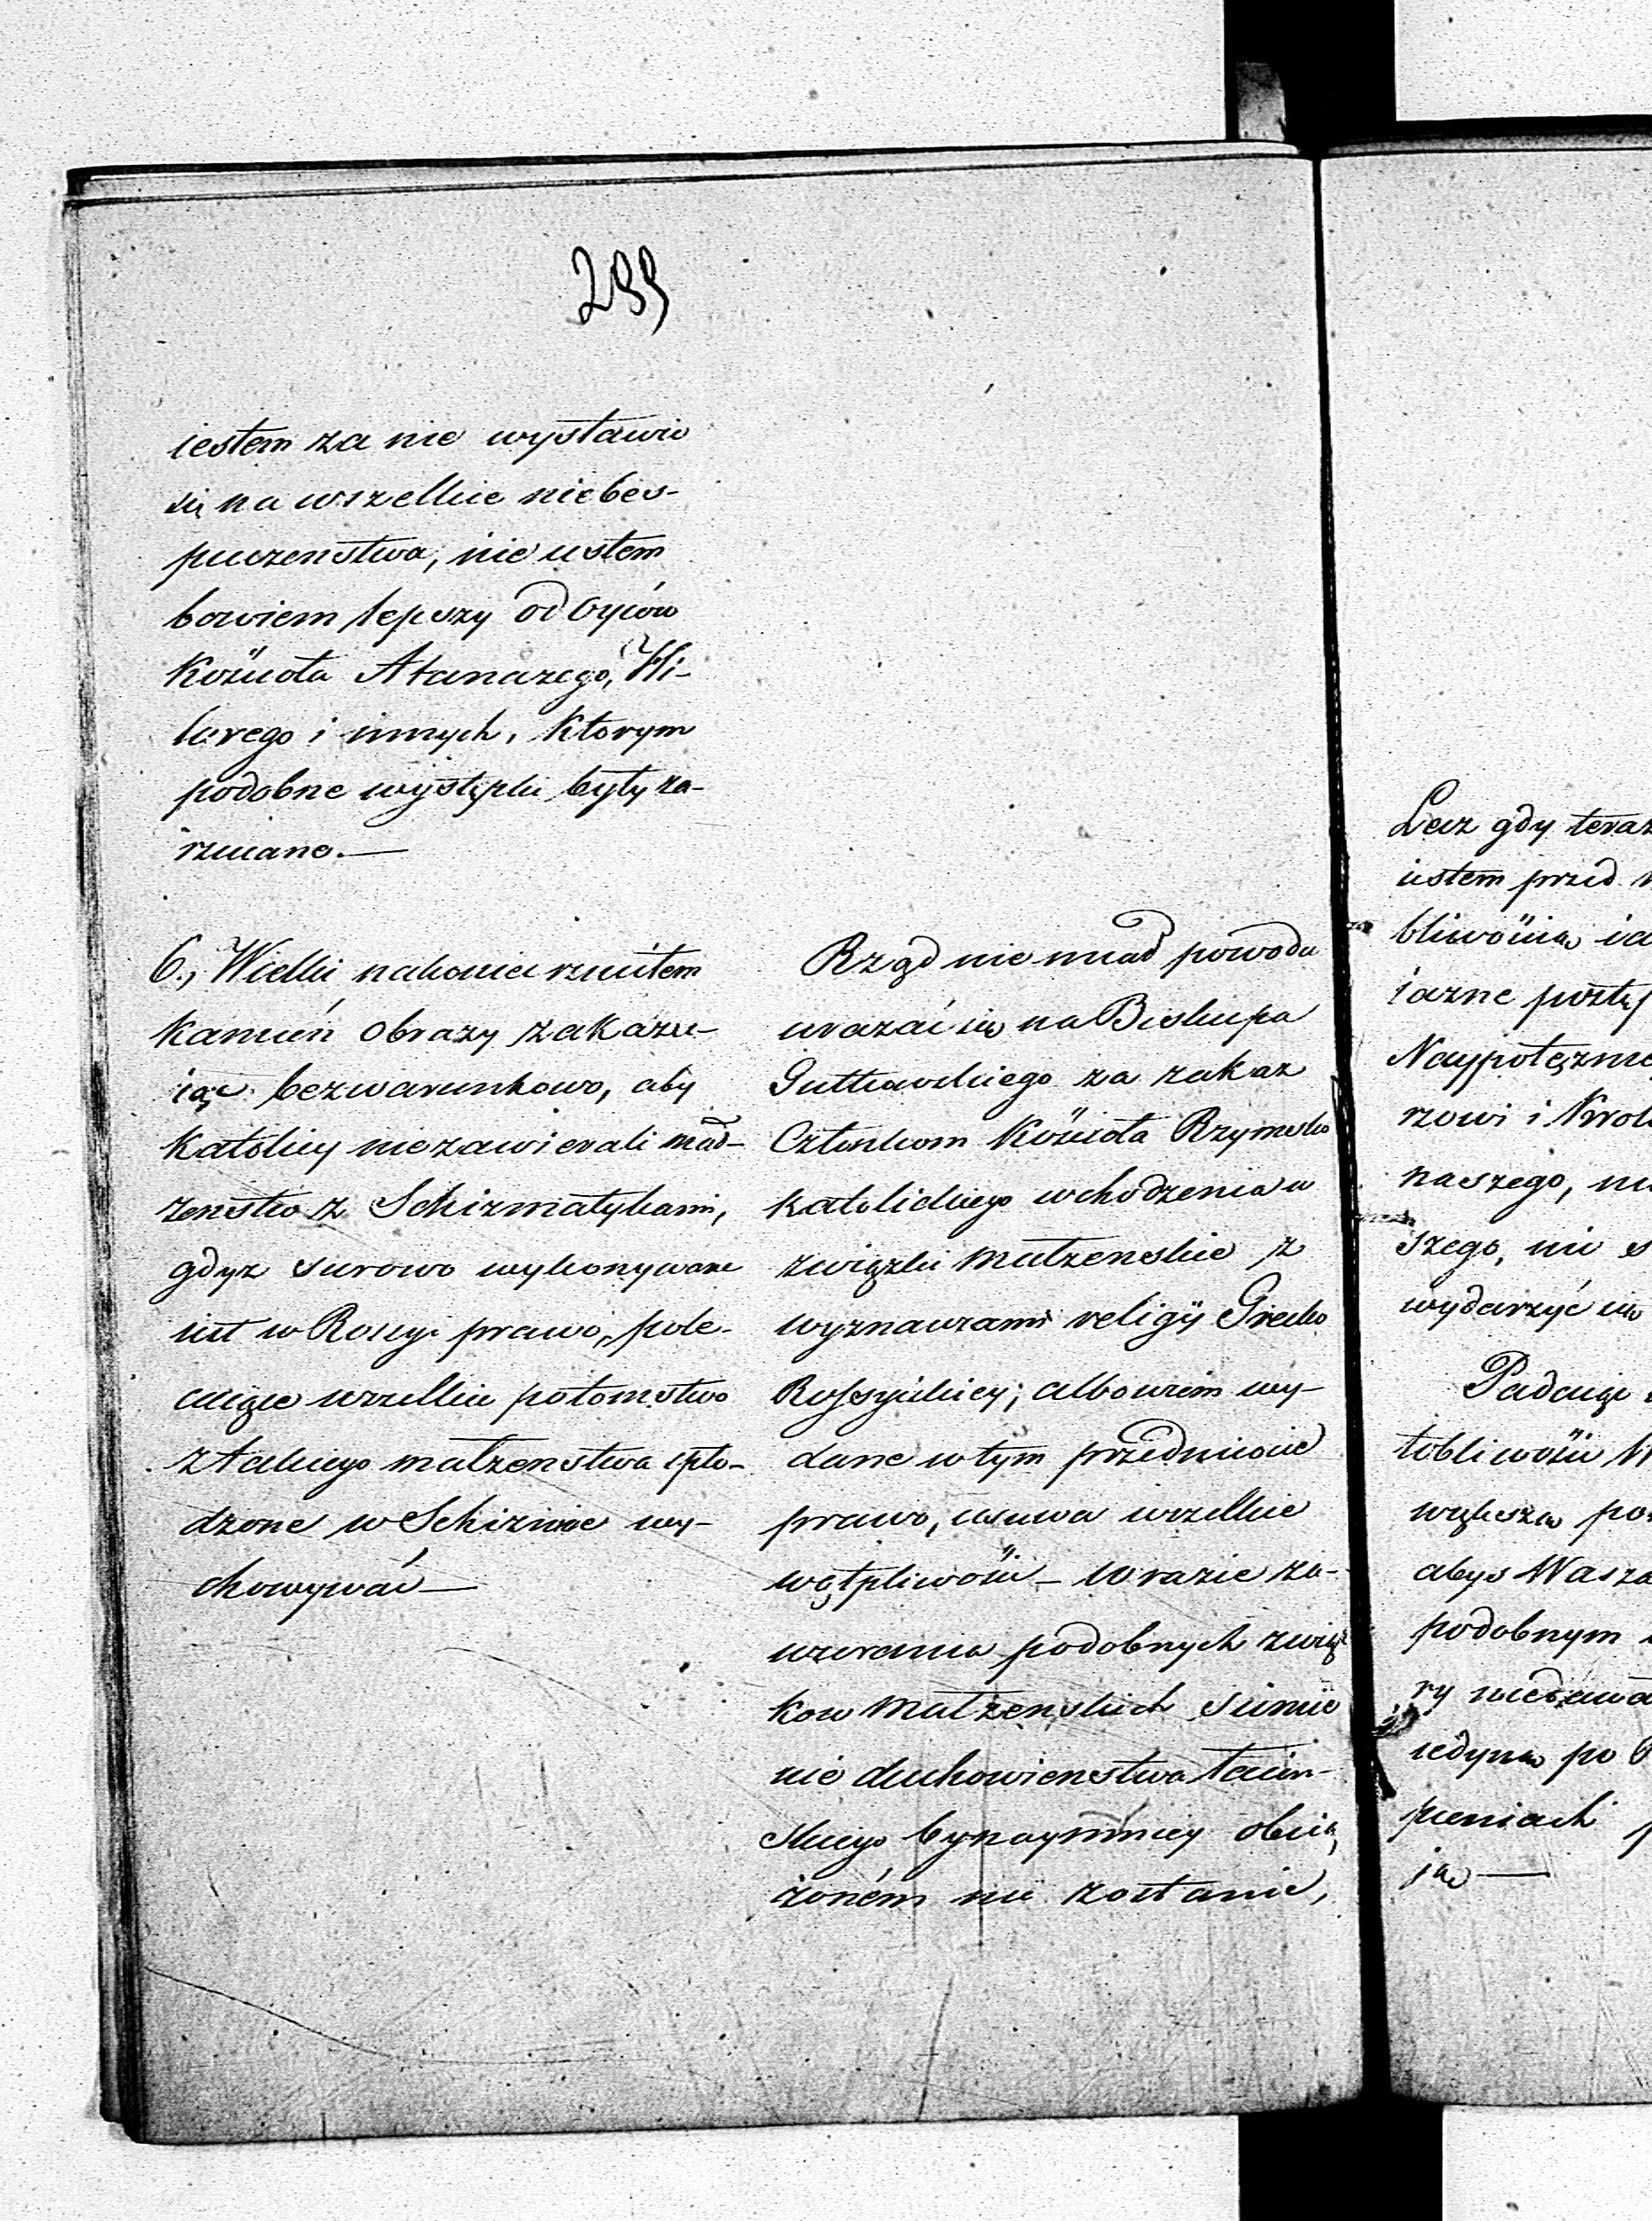 299
iestem za nie wystawić
się na wszelkie niebes-
pieczenstwa, nie iestem
bowiem lepszy od Oyców
Kościoła Atanazego, Hi-
larego i innych, ktorym
podobne występki były za-
rzucane.—
6., Wielki nakoniec rzuciłem
kamień obrazy zakazu-
iąc bezwarunkowo, aby
katolicy niezawierali mał-
zenstw z Schizmatykami,
gdyz surowo wykonywane
iest w Rossyi prawo, pole-
caiące wszelkie potomstwo
z takiego malzenstwa spło-
dzone w Schizmie wy-
chowywać—
Rząd nie miał powodu
urazać się na Biskupa
Gutkowskiego za zakaz
Członkom Kościoła Rzymsko
katolickiego wchodzenia w
związki małzenskie z
wyznawcami religij Grecko
Rossyiskiey; albowiem wy-
dane w tym przedmiocie
prawo, usuwa wszelkie
wątpliwości – W razie za-
wierania podobnych związ
kow małzenskich sumie
nie duchowienstwa łacin-
skiego bynaymniey obcią
żoném nie zostanie,
Lecz gdy teraz
iestem przed
bliwością
iazne postęp
Nayjpotęznie
rzowi i Krol
naszego,
szego, nie s
wydarzyć się
Padaiąc
tobliwości
większa po
abys Wasza
podobnym
ry niedawa
iedyna po
pieniach p
ja —